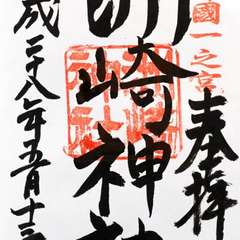 國一之宮
奉拝
洲崎神
成二十八年五月十三